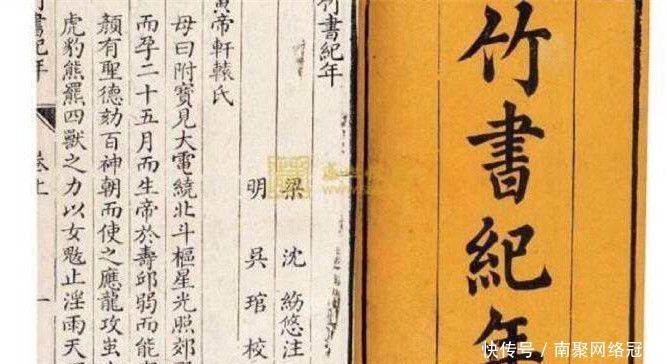 竹書紀年
竹書紀年
梁 沈約 注
明 吳琯校
黃帝軒轅氏
母曰附寶見大電繞北斗樞星光照郊
而孕二十五月而生帝於壽邱弱而能
顏有聖德劾百神朝而使之應龍攻蚩
虎豹熊羆四獸之力以女魃止淫雨天
竹書紀年 卷上 一
快传号／南聚网络冠